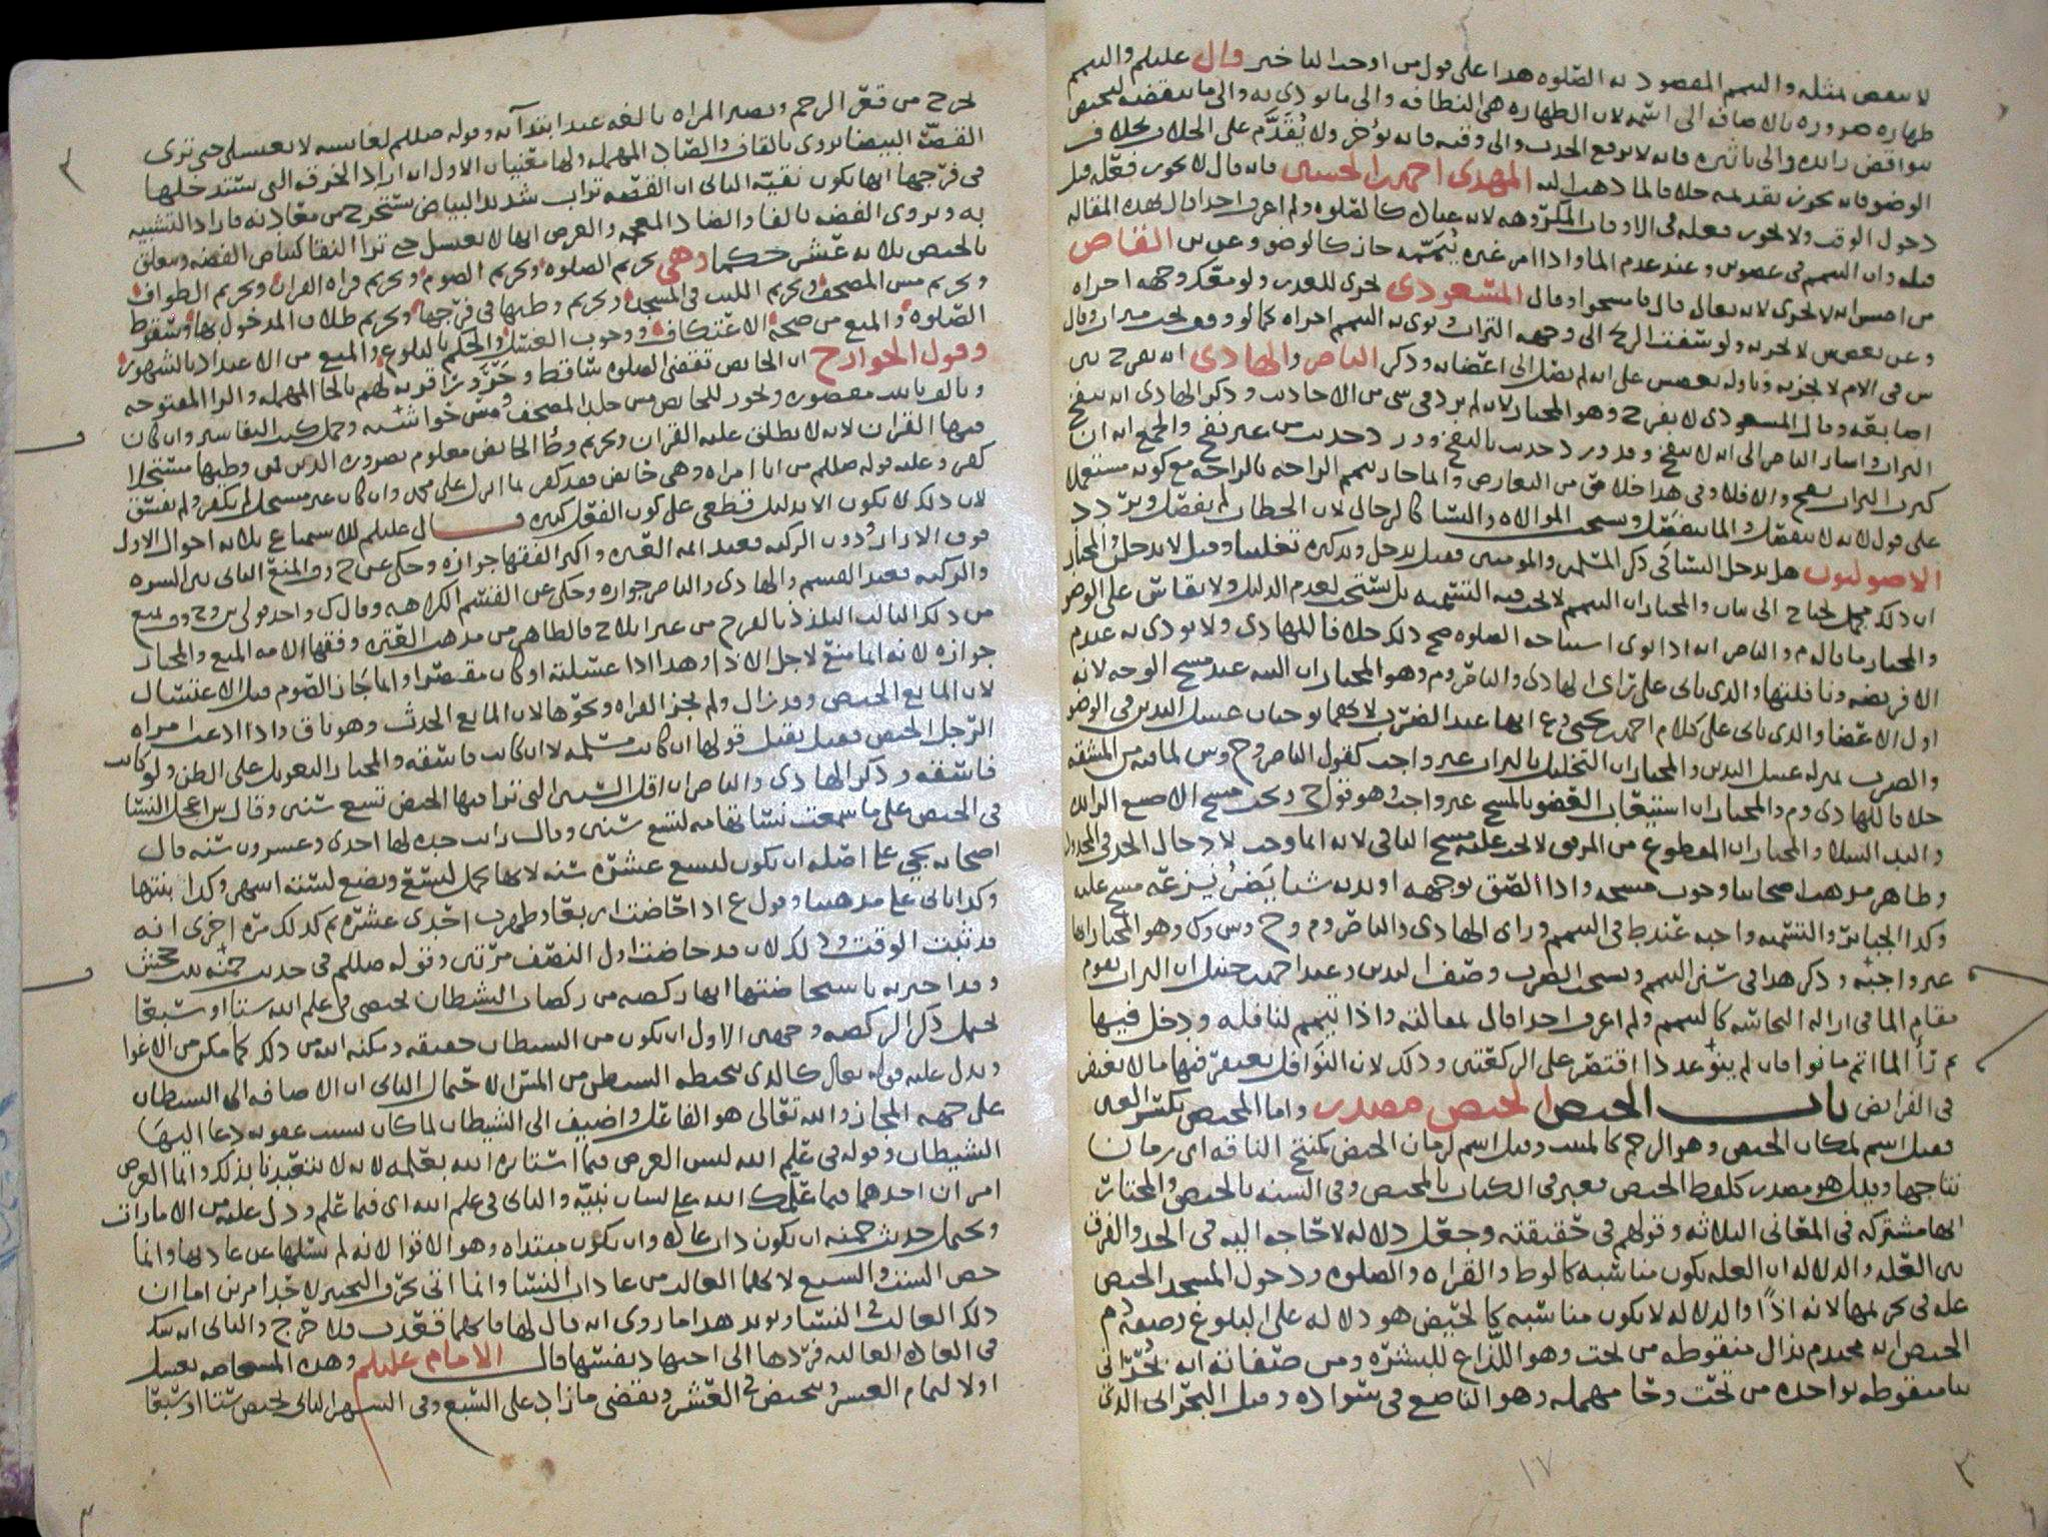 لا ينقص بمثله والتيمم المقصود به الصلوه هذا على قول من اوجب التاخير قال عليلم والتيمم
طهاره ضروره بالاضافه الى اسمه لان الطهاره هى النظافه والى ما يودى به والى ما ينقضه
نواقض زائده والى تاثيره فانه لا يرفع الحدث والى وقته فانه يؤخر ولا يُقَدَّم على الخلاف بخلاف
الوضو فانه يجوز تقديمه خلافا لما ذهب اليه المهدى احمد بن الحسين فانه قال لا يجوز فعله قبل
دخول الوقت ولا يجوز فعله فى الاوقات المكروهه لانه عباده كالصلوه ولم اعرف احدا قال بهذه المقاله
قبله وان التيمم فى عضوين وعند عدم الما واذا امر غيره يُيَمِّمه جاز كالوضو وعن بن القاص
من اصحابنا انه لا يجزى لانه تعالى قال فامسحوا وقال المسعودى يجزى للعذر ولو معك وجهه اجزاه
وعن بعضهم لا يجزيه ولو سفت الريح الى وجهه التراب ونوى به التيمم اجزاه كما لو وقف تحت ميزاب وقال
ش فى الام لا يجزيه وتاوله بعضهم على انه لم يصل الى اعضائه وذكر الناصر والهادى انه يفرج بين
اصابعه وقال المسعودى لا يفرج وهو المختار لانه لم يرد فى شى من الاحاديث وذكر الهادى انه ينفخ
التراب واشار الناصر الى انه لا ينفخ وقد ورد حديث بالنفخ وورد حديث من غير نفخ والجمع انه ان
كثر التراب نفخ والا فلا وفى هذا خلاص من التعارض وانما جاز تيمم الراحه بالراحه مع كونه مستعملا
على قول لانه لا ينفصل والما ينفصل ويستحب الموالاه والنسا كالرجال لان الخطاب لم يفصل وتردد
الاصوليون هل يدخل النسا فى ذكر المسلمين والمومنين فقيل يدخل وتذكيره تغليبا وقيل لا يدخل والمختار
ان ذلك مجمل يحتاج الى بيان والمختار ان التيمم لا يجب فيه التسميه بل يستحب لعدم الدليل ولا يقاس على الوضو
والمختار ما قاله م والناصر انه اذا نوى استباحه الصلوه صح ذلك خلافا للهادى ولا يودى به عندم
الا فريضه ونافلتها والذى ياتى على راى الهادى والناصر وم وهو المختار ان النيه عند مسح الوجه لانه
اول الاعضا والذى ياتى على كلام احمد بن يحيى وع انها عند الضرب لانهما يوجبان غسل اليدين فى الوضو
والضرب بمنزله غسل اليدين والمختار ان التخليل بالتراب غير واجب كقول الناصر وح وس لما فيه من المشقه
خلافا للهادى وم والمختار ان استيعاب العضو بالمسح غير واجب وهو قول ح ويجب مسح الاصبع الزايده
واليد السلا والمختار ان المقطوع من المرفق لا يجب عليه مسح الباقى لانه انما وجب لادخال الحد فى المحدود
وظاهر مذهب اصحابنا وجوب مسحه واذا الصق بوجهه او يديه شيا يَضُرُّ نَزعه مسح عليه
وكذا الجبائر والتسميه واجبه عند ط فى التيمم وراى الهادى والناصر وم وح وس وك وهو المختار انها
غير واجبه وذكر هذا فى سنن التيمم ويستحب الضرب وصف اليدين وعند احمد بن حنبل ان التراب يقوم
مقام الما فى ازاله النجاسه كالتيمم ولم اعرف احدا قال بمقالته واذا تيمم لنافله ودخل فيها
ثم رأ الما اتم ما نوا فان لم ينو عددا اقتصر على الركعتين وذلك لان النوافل يغتفر فيها ما لا يغتفر
فى الفرايض باب الحيض الحيض مصدر واما المحيض بكسر العين
فقيل اسم لمكان الحيض وهو الرحم كالمبيت وقيل اسم لزمان الحيض كمنتج الناقه اى زمان
نتاجها وقيل هو مصدر كلفظ الحيض فعبر فى الكتاب بالمحيض وفى السنه بالحيض والمختار
انها مشتركه فى المعانى الثلاثه وقولهم فى حقيقته وجعل دلاله لا حاجه اليه فى الحد والفرق
بين العله والدلاله ان العله يكون مناسبه كالوط والقراه والصلوه ودخول المسجد الحيض
عله فى تحريمها لانه اذًا والدلاله لا يكون مناسبه كالحيض هو دلاله على البلوغ وصفه دم
الحيض انه محتدم بذال منقوطه من تحت وهو اللذاع للبشره ومن صفاته انه بُحْرانى
ببا منقوطه بواحده من تحت وحا مهمله وهو الناصع فى سواده وقيل البحرانى الذى
يخرج من قعر الرحم وتصير المراه بالغه عند ابتدآئه وقوله صللم لعائشه لا تغتسلى حتى ترى
القصّه البيضا يروى بالقاف والصاد المهمله ولها معنيان الاول انه اراد الخرقه التى تستدخلها
فى فرجها انها تكون نقيّه الثانى ان القصه تراب شديد البياض يستخرج من معادنه فاراد التشبيه
به ويروى الفضه بالفا والضاد المعجمه والغرض انها لا تغتسل حتى ترا النقا كبياض الفضه ويتعلق
بالحيض ثلاثه عشر حكما وهى تحريم الصلوه وتحريم الصوم وتحريم قراه القران وتحريم الطواف
وتحريم مس المصحف وتحريم اللبث فى المسجد وتحريم وطيها فى فرجها وتحريم طلاق المدخول بها وسقوط
الصلوه والمنع من صحه الاعتكاف ووجوب الغسل والحكم بالبلوغ والمنع من الاعتداد بالشهور
وقول الخوارج ان الحائض تقضى الصلوه ساقط وحَرَورَا قريه لهم بالحا المهمله والرا المفتوحه
وبالف ياتيت مقصوره ويجوز للحائض مس جلد المصحف ومس حواشيه وحمل كتب التفاسير وان كان
فيها القران لانه لا يطلق عليه القران وتحريم وطأ الحائض معلوم ضروره الدين فمن وطيها مستحلا
كفر وعليه قوله صللم من اتا امراه وهى حائض فقد كفر بما انزل على محمد وان كان غير مستحل لم يكفر ولم يفسق
لان ذلك لا يكون الا بدليل قطعى على كون الفعل كبيره قال عليلم للاستمتاع ثلاثه احوال الاول
فوق الازار ودون الركبه فعند ائمه العتره واكثر الفقها جوازه وحكى عن ح وف المنع الثانى بين السره
والركبه فعند القسم والهادى والناصر جوازه وحكى عن القسم الكراهيه وقال ك واحد قولى ش وح وف يمنع
من ذلك الثالث التلذذ بالفرج من غير ايلاج فالظاهر من مذهب العتره وفقها الامه المنع والمختار
جوازه لانه انما منع لاجل الاذا وهذا اذا غسلته او كان مقصرا وانما جاز الصوم قبل الاغتسال
لان المانع الحيض وقد زال ولم يجز القراه ونحوها لان المانع الحدث وهو باق واذا ادعت امراه
الرجل الحيض فقيل يقبل قولها ان كانت مسلمه لا ان كانت فاسقه والمختار التعويل على الظن ولو كانت
فاسقه وذكر الهادى والناصر ان اقل السن التى ترا فيها الحيض تسع سنين وقال ش اعجل النسا
فى الحيض على ما سمعت نسا تهامه لتسع سنين وقال رايت جده لها احدى وعشرون سنه قال
اصحابه يجى على اصله ان يكون لتسع عشره سنه لانها تحمل لتسع وتضع لسته اشهر وكذا ابنتها
وكذا ياتى على مذهبنا وقول ع اذا حاضت اربعا وطهرت احدى عشره ثم كذلك مره اخرى انه
قد ثبت الوقت وذلك لان قد حاضت اول النصف مرتين وقوله صللم فى حديث حمنه بنت جحش
وقد اخبرته باستحاضتها انها ركضه من ركضات الشيطان تحيضى فى علم الله ستا او سبعا
يحمل ذكر الركضه وجهين الاول ان يكون من الشيطان حقيقه ومكنه الله من ذلك كما مكن من الاغوا
ويدل عليه قوله تعالى كالذى يتخبطه الشيطن من المس الاحتمال الثانى ان الاضافه الى الشيطان
على جهه المجاز والله تعالى هو الفاعل واضيف الى الشيطان لما كان بسبب عقوبه دعا اليها
الشيطان وقوله فى علم الله ليس الغرض فيما استاثره الله بعلمه لانه لا يتعبدنا بذلك وانما الغرض
امران احدهما فيما علمك الله على لسان نبيه والثانى فى علم الله اى فيما علم ودل عليه من الامارات
ويحتمل حديث حمنه ان يكون ذات عاده وان تكون مبتداه وهو الاقوا لانه لم يسئلها عن عادتها وانما
خص الست والسبع لانهما الغالب من عادات النسا وانما اتى بحرف التخيير لاحد امرين اما ان
ذلك الغالب فى النسا ويويد هذا ما روى انه قال لها فايهما قعدت فلا حرج والثانى انه شك
فى العاده الغالبه فردها الى اجتهاد نفسها قال الامام عليلم وهذه المستحاضه تغتسل
اولا لتمام العشر وتحيض فى العشر وتقضى ما زاد على السبع وفى الشهر الثانى تحيض ستا او سبعا
١٧